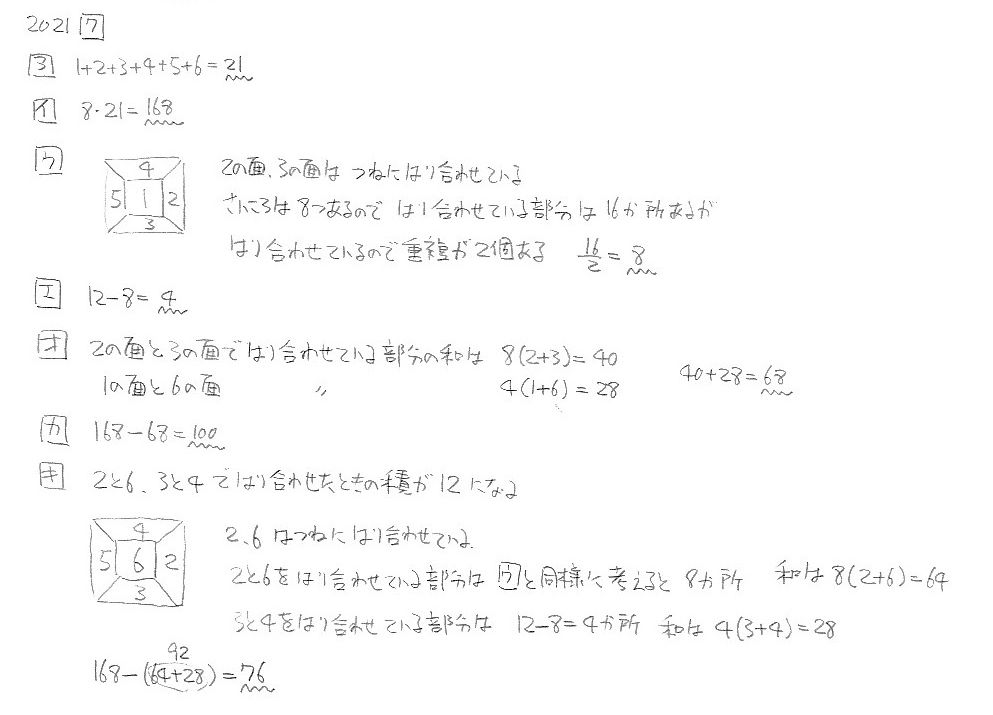 2021 ７
ヨ 1+2+3+4+5+6=21
イ 8・21=168
ウ 2の面、3の面は つねにはり合わせている
4
5 1 2
3
さいころは8つあるので はり合わせている部分は16か所あるが
はり合わせているので重複が2個ある 16/2=8
エ 12-8=4
オ 2の面と3の面ではり合わせている部分の和は 8(2+3)=40
1の面と6の面 〃 4(1+6)=28 40+28=68
カ 168-68=100
キ 2と6、3と4ではり合わせたときの積が12になる
4
5 6 2
3
2、6はつねにはり合わせている
2と6をはり合わせている部分は ウと同様に考えると 8か所 和は8(2+6)=64
3と4をはり合わせている部分は 12-8=4か所 和は4(3+4)=28
92
168-(64+28)=76